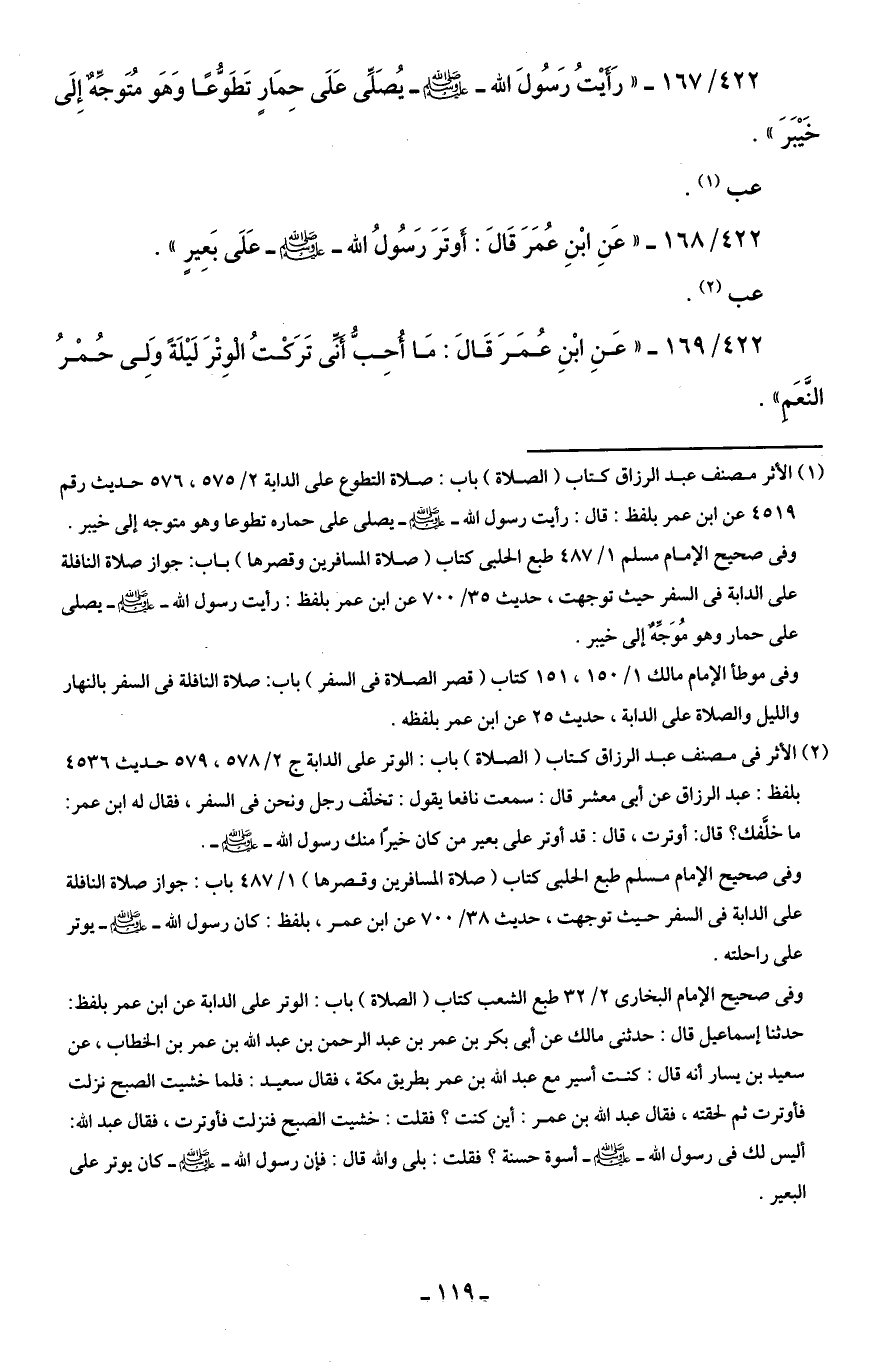 ٤٢٢/ ١٦٧ ـ « رَأَيْتُ رَسُولَ الله ـ ﷺ ـ يُصَلِّى عَلَى حِمَارٍ تَطَوُّعًا وَهَو مُتَوجِّهٌ إِلَى
خَيْبَرَ » .
عب (١) .
٤٢٢/ ١٦٨ ـ « عَنِ ابْنِ عُمَرَ قَالَ : أَوتَرَ رَسُولُ الله ـ ﷺ ـ عَلَى بَعِيرٍ » .
عب (٢) .
٤٢٢/ ١٦٩ ـ « عَنِ ابْنِ عُمَرَ قَالَ : مَا أُحِبُّ أَنِّى تَرَكْتُ الْوِتْرَ لَيْلَةً وَلِى حُمْرُ
النَّعَمِ» .
(١) الأثر مصنف عبد الرزاق كتاب ( الصلاة ) باب : صلاة التطوع على الدابة ٢/ ٥٧٥ ، ٥٧٦ حديث رقم
٤٥١٩ عن ابن عمر بلفظ : قال : رأيت رسول الله ـ ﷺ ـ يصلى على حماره تطوعا وهو متوجه إلى خيبر .
وفى صحيح الإمام مسلم ١/ ٤٨٧ طبع الحلبى كتاب ( صلاة المسافرين وقصرها ) باب: جواز صلاة النافلة
على الدابة فى السفر حيث توجهت ، حديث ٣٥/ ٧٠٠ عن ابن عمر بلفظ : رأيت رسول الله ـ ﷺ ـ يصلى
على حمار وهو مُوَجِّهٌ إلى خيبر .
وفى موطأ الإمام مالك ١/ ١٥٠ ، ١٥١ كتاب ( قصر الصلاة فى السفر ) باب: صلاة النافلة فى السفر بالنهار
والليل والصلاة على الدابة ، حديث ٢٥ عن ابن عمر بلفظه .
(٢) الأثر فى مصنف عبد الرزاق كتاب ( الصلاة ) باب : الوتر على الدابة ج ٢/ ٥٧٨ ، ٥٧٩ حديث ٤٥٣٦
بلفظ : عبد الرزاق عن أبى معشر قال : سمعت نافعا يقول : تخلّف رجل ونحن فى السفر ، فقال له ابن عمر:
ما خلَّفك؟ قال: أوترت ، قال : قد أوتر على بعير من كان خيراً منك رسول الله ـ ﷺ ـ .
وفى صحيح الإمام مسلم طبع الحلبى كتاب ( صلاة المسافرين وقصرها ) ١/ ٤٨٧ باب : جواز صلاة النافلة
على الدابة فى السفر حيث توجهت ، حديث ٣٨/ ٧٠٠ عن ابن عمر ، بلفظ : كان رسول الله ـ ﷺ ـ يوتر
على راحلته .
وفى صحيح الإمام البخارى ٢/ ٣٢ طبع الشعب كتاب ( الصلاة ) باب : الوتر على الدابة عن ابن عمر بلفظ:
حدثنا إسماعيل قال : حدثنى مالك عن أبى بكر بن عمر بن عبد الرحمن بن عبد الله بن عمر بن الخطاب ، عن
سعيد بن يسار أنه قال : كنت أسير مع عبد الله بن عمر بطريق مكة ، فقال سعيد : فلما خشيت الصبح نزلت
فأوترت ثم لحقته ، فقال عبد الله بن عمر : أين كنت ؟ فقلت : خشيت الصبح فنزلت فأوترت ، فقال عبد الله:
أليس لك فى رسول الله ـ ﷺ ـ أسوة حسنة ؟ فقلت : بلى والله قال : فإن رسول الله ـ ﷺ ـ كان يوتر على
البعير .
ـ ١١٩ ـ